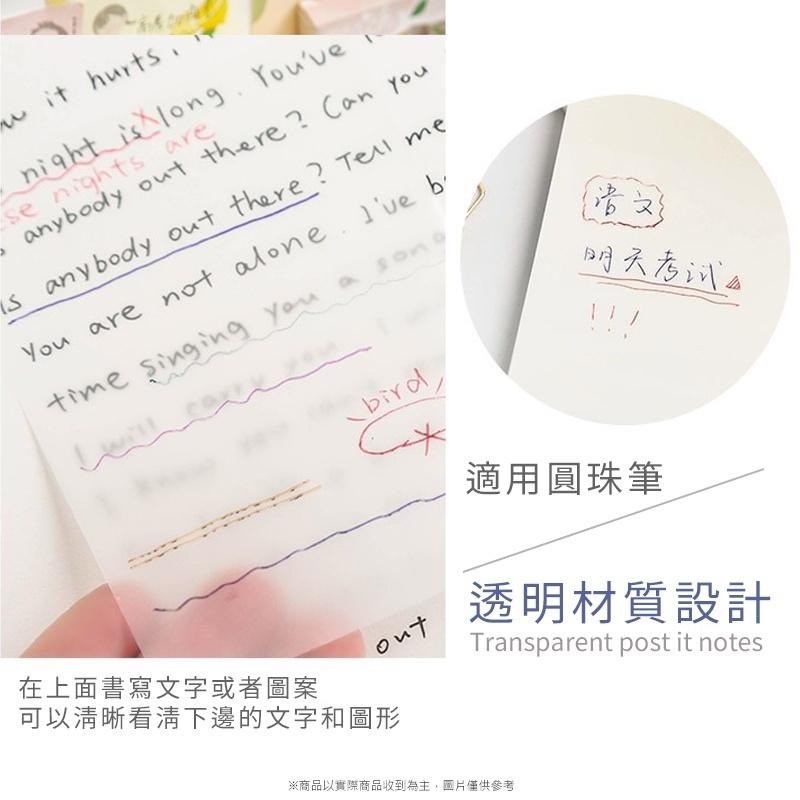 w it hurts, i
night is long. You've
se nights are
anybody out there? Can you
is anybody out there? Tell me
You are not alone. I've b
time singing you a song
I will carry you
I know you can't
bird
out
语文
明天考试
!!!
適用圓珠筆
透明材質設計
Transparent post it notes
在上面書寫文字或者圖案
可以清晰看清下邊的文字和圖形
※商品以實際商品收到為主，圖片僅供參考